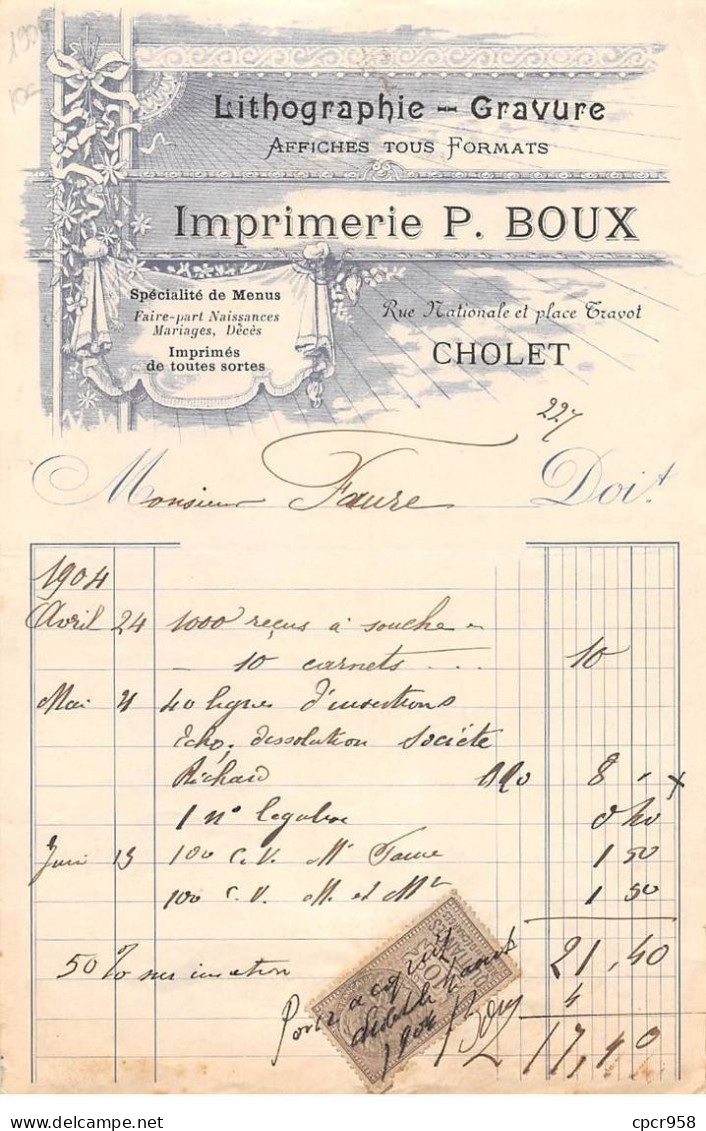 1904
102
Lithographie — Gravure
Affiches tous Formats
Imprimerie P. BOUX
Spécialité de Menus
Faire-part Naissances
Mariages, Décès
Imprimés
de toutes sortes
Rue Nationale et place Travot
CHOLET
227
Monsieur Faure Doit
1904
Avril 24 1000 reçus à souche
10 carnets . . . 10
Mai 4 40 lignes d'insertions
Echo, dissolution Société
Richard 0,20 8 " x
1 n° 0,40
Juin 13 100 C.V. Mr Faure 1 50
100 C.V. M. et Me 1 50
21,40
50 % sur insertion 4
17,40
Pour acquit
1904
Boux
cpcr958